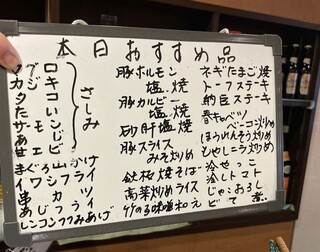 本日おすすめ品
さしみ
豚ホルモン
塩焼
豚カルビー
塩焼
砂肝塩焼
豚スライス
みそ炒め
鉄板焼そば
高菜炒めライス
竹の子味噌和え
ネギたまご焼
トーフステーキ
納豆ステーキ
春キャベツ
ベーコン炒め
ほうれんそう炒め
もやしニラ炒め
冷せっこ
冷しトマト
じゃこおろし
まぐろ山かけ
イワシフライ
串カツ
あじフライ
レンコンつつみあげ